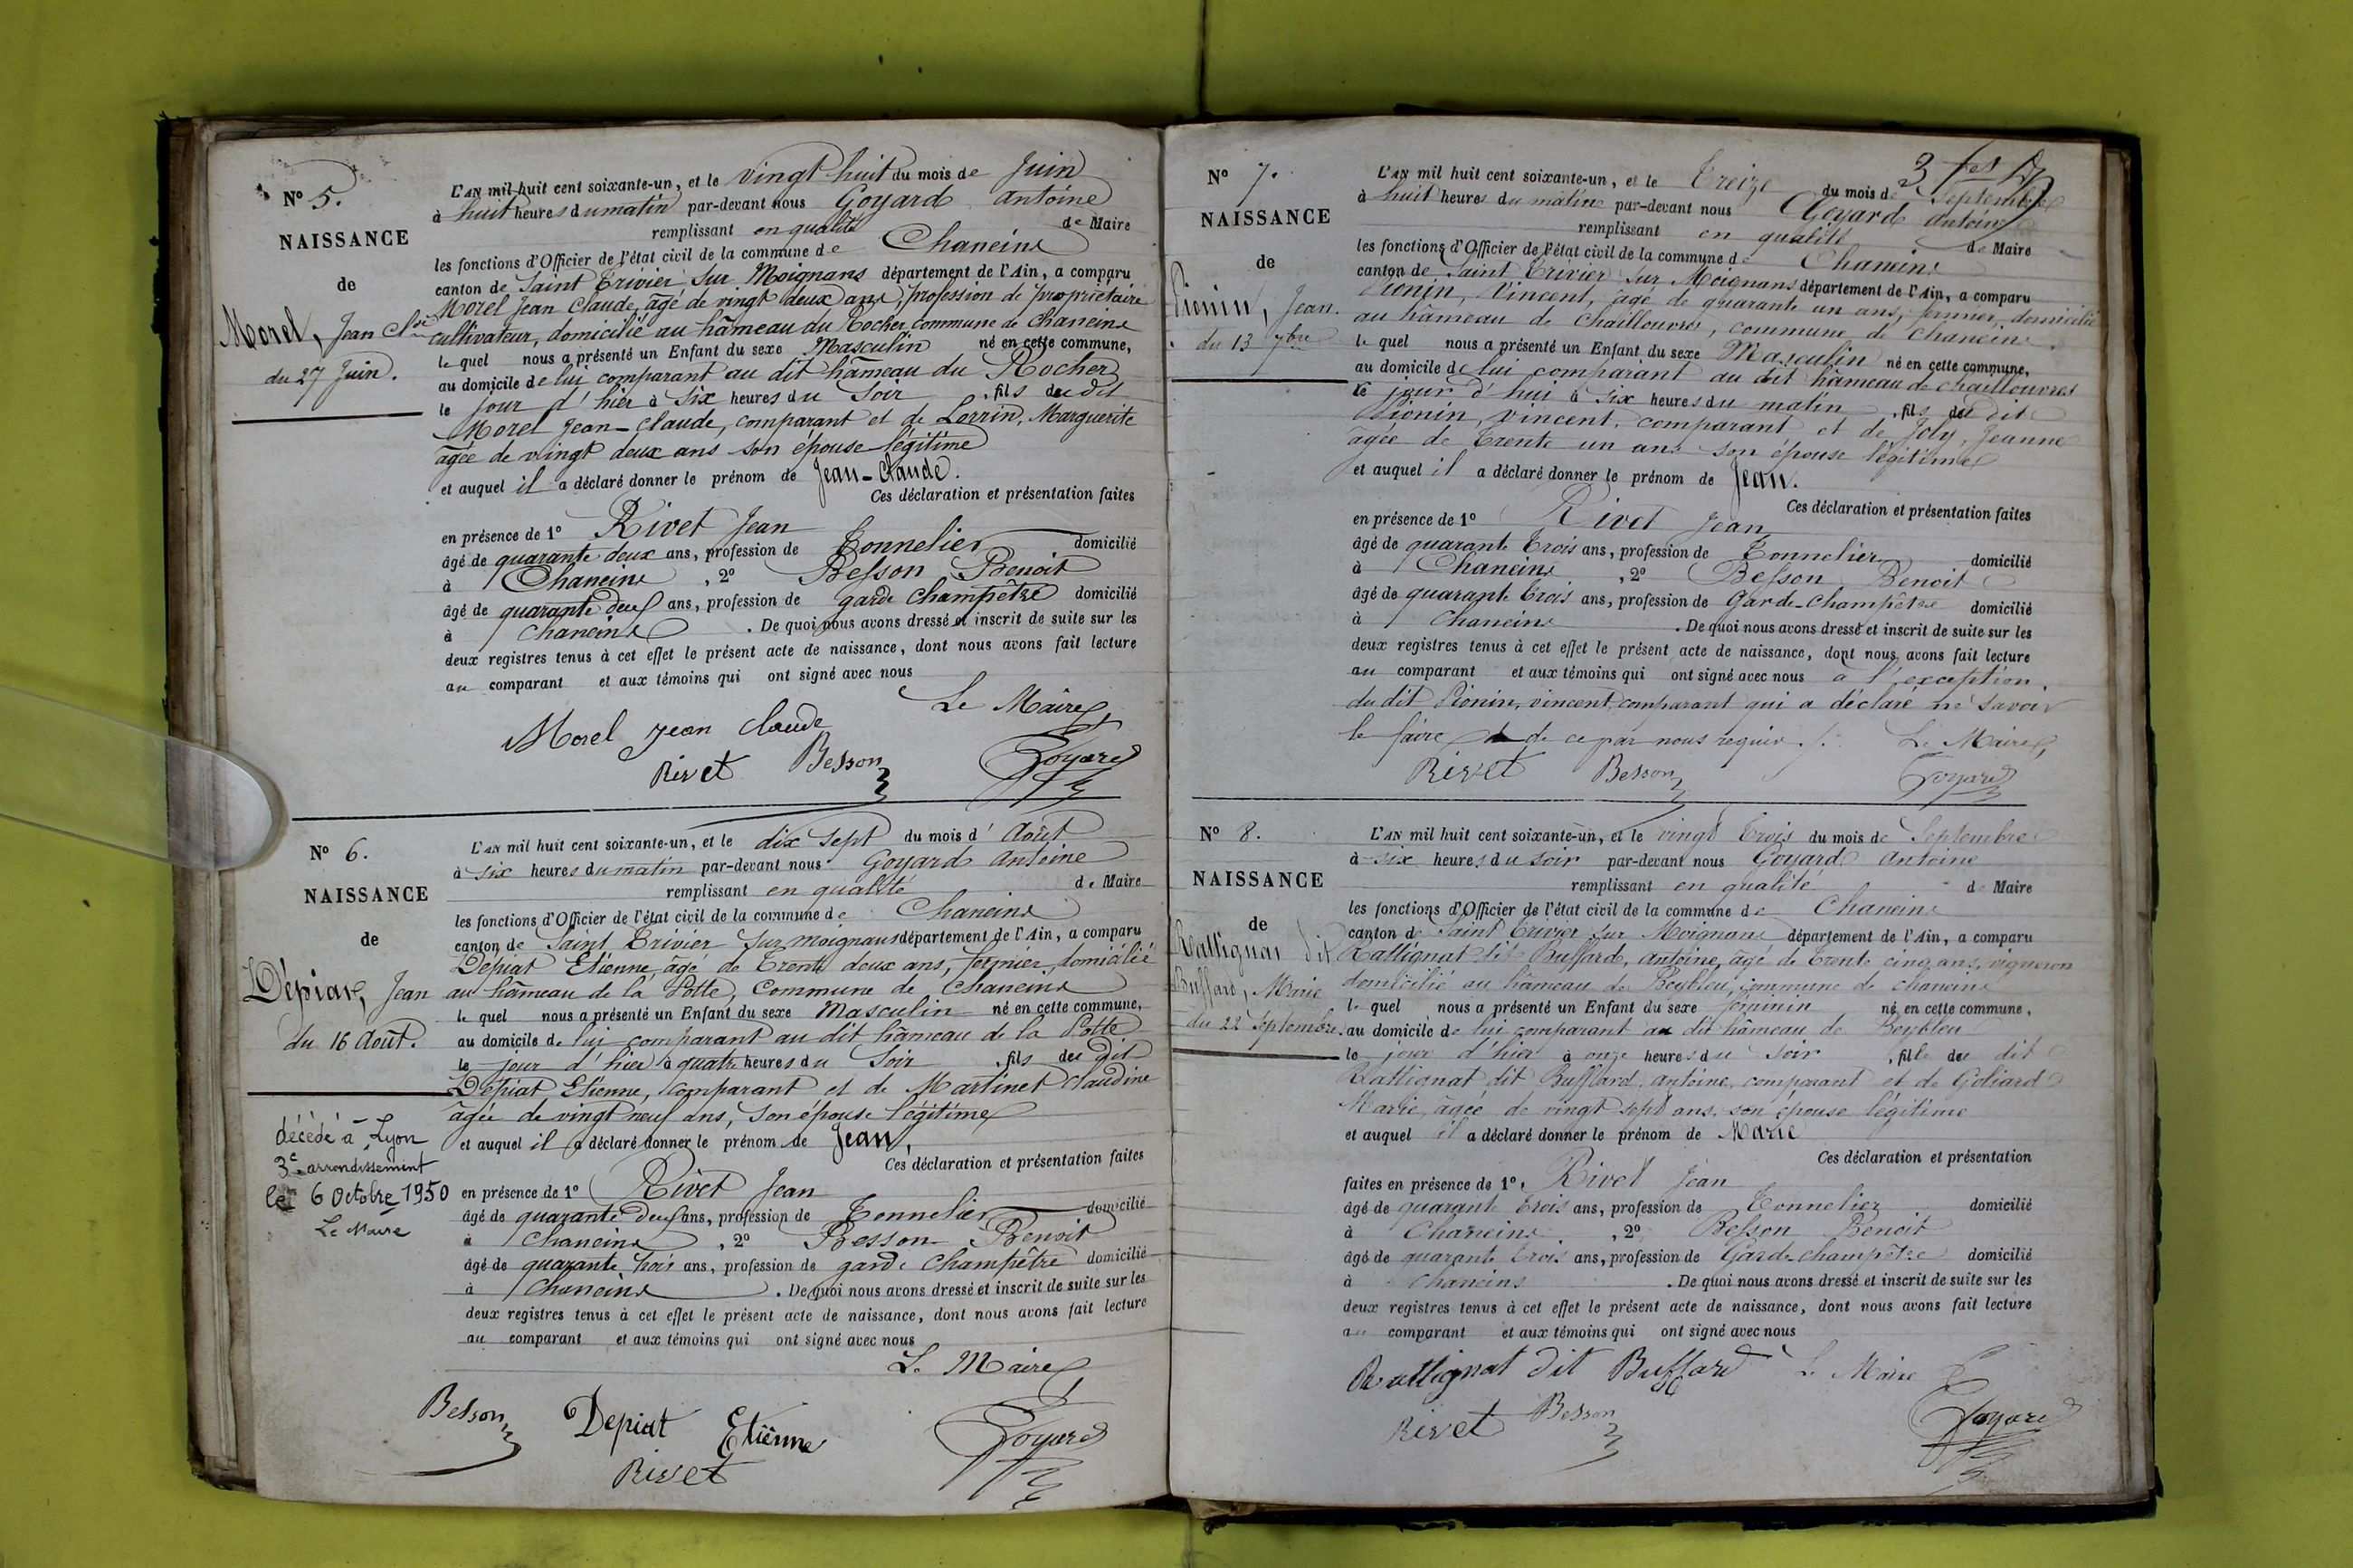 N° 5.
NAISSANCE
de
Morel, Jean Cl.de
du 27 Juin.
L'AN mil huit cent soixante-un, et le vingt huit du mois de Juin
à huit heures du matin par-devant nous Goyard Antoine
remplissant en qualité de Maire
les fonctions d'Officier de l'état civil de la commune de Chaneins
canton de Saint Trivier sur Moignans département de l'Ain, a comparu
Morel Jean Claude, âgé de vingt deux ans, profession de propriétaire
cultivateur, domicilié au hâmeau du Rocher commune de Chaneins
le quel nous a présenté un Enfant du sexe Masculin né en cette commune,
au domicile de lui comparant au dit hâmeau du Rocher
le jour d'hier à six heures du soir , fils du dit
Morel Jean-Claude, comparant et de Lorrin, Marguerite
âgée de vingt deux ans son épouse légitime
et auquel il a déclaré donner le prénom de Jean-Claude.
Ces déclaration et présentation faites
en présence de 1° Rivet Jean
âgé de quarante deux ans, profession de Tonnelier domicilié
à Chaneins , 2° Besson Benoit
âgé de quarante deux ans, profession de garde Champêtre domicilié
à Chaneins . De quoi nous avons dressé et inscrit de suite sur les
deux registres tenus à cet effet le présent acte de naissance, dont nous avons fait lecture
au comparant et aux témoins qui ont signé avec nous
Le Maire
Morel Jean Claude
Rivet Besson Goyard
N° 6.
NAISSANCE
de
Dépiat, Jean
du 16 Août.
décédé à Lyon
3e arrondissement
le 6 Octobre 1950
Le Maire
L'AN mil huit cent soixante-un, et le dix sept du mois d'Août
à six heures du matin par-devant nous Goyard Antoine
remplissant en qualité de Maire
les fonctions d'Officier de l'état civil de la commune de Chaneins
canton de Saint Trivier sur moignans département de l'Ain, a comparu
Dépiat Etienne, âgé de Trente deux ans, fermier, domicilié
au hâmeau de la Potte, Commune de Chaneins
le quel nous a présenté un Enfant du sexe Masculin né en cette commune,
au domicile de lui comparant au dit hâmeau de la Potte
le jour d'hier à quatre heures du Soir , fils du dit
Dépiat Etienne, comparant et de Martinet Claudine
âgée de vingt neuf ans, son épouse légitime
et auquel il a déclaré donner le prénom de Jean,
Ces déclaration et présentation faites
en présence de 1° Rivet Jean
âgé de quarante deux ans, profession de Tonnelier domicilié
à Chaneins , 2° Besson Benoit
âgé de quarante trois ans, profession de garde Champêtre domicilié
à Chaneins . De quoi nous avons dressé et inscrit de suite sur les
deux registres tenus à cet effet le présent acte de naissance, dont nous avons fait lecture
au comparant et aux témoins qui ont signé avec nous
Le Maire
Besson Depiat Etiènne Goyard
Rivet
N° 7.
NAISSANCE
de
Pionin, Jean.
du 13 7bre
3
L'AN mil huit cent soixante-un, et le Treize du mois de Septembre
à huit heures du matin par-devant nous Goyard Antoine
remplissant en qualité de Maire
les fonctions d'Officier de l'état civil de la commune de Chaneins
canton de Saint Trivier sur Moignans département de l'Ain, a comparu
Pionin, Vincent, âgé de quarante un ans, fermier, domicilié
au hâmeau de Chaillouvres, commune de Chaneins.
le quel nous a présenté un Enfant du sexe Masculin né en cette commune,
au domicile de lui comparant au dit hâmeau de Chaillouvres
le jour d'hui à six heures du matin , fils du dit
Pionin, Vincent, comparant et de Joly, Jeanne
âgée de Trente un ans son épouse légitime
et auquel il a déclaré donner le prénom de Jean.
Ces déclaration et présentation faites
en présence de 1° Rivet Jean
âgé de quarante trois ans, profession de Tonnelier domicilié
à Chaneins , 2° Besson Benoit
âgé de quarante trois ans, profession de Garde-Champêtre domicilié
à Chaneins . De quoi nous avons dressé et inscrit de suite sur les
deux registres tenus à cet effet le présent acte de naissance, dont nous avons fait lecture
au comparant et aux témoins qui ont signé avec nous à l'exception
du dit Pionin, vincent, comparant qui a déclaré ne savoir
le faire de ce par nous requis. Le Maire
Rivet Besson Goyard
N° 8.
NAISSANCE
de
Rattignat dit
Buffard, Marie
du 22 Septembre.
L'AN mil huit cent soixante-un, et le vingt trois du mois de Septembre
à six heures du soir par-devant nous Goyard Antoine
remplissant en qualité de Maire
les fonctions d'Officier de l'état civil de la commune de Chaneins
canton de Saint Trivier sur Moignans département de l'Ain, a comparu
Rattignat dit Buffard, Antoine, âgé de Trente cinq ans, vigneron
domicilié au hâmeau de Beybleu, commune de chaneins
le quel nous a présenté un Enfant du sexe féminin né en cette commune,
au domicile de lui comparant au dit hâmeau de Beybleu
le jour d'hier à onze heures du soir , fille du dit
Rattignat dit Buffard, Antoine, comparant et de Goliard
Marie, âgée de vingt sept ans, son épouse légitime
et auquel il a déclaré donner le prénom de Marie
Ces déclaration et présentation
faites en présence de 1°, Rivet Jean
âgé de quarante trois ans, profession de Tonnelier domicilié
à Chaneins , 2° Besson Benoit
âgé de quarante trois ans, profession de Garde-champêtre domicilié
à Chaneins . De quoi nous avons dressé et inscrit de suite sur les
deux registres tenus à cet effet le présent acte de naissance, dont nous avons fait lecture
au comparant et aux témoins qui ont signé avec nous
Rattignat dit Buffard Le Maire
Rivet Besson Goyard